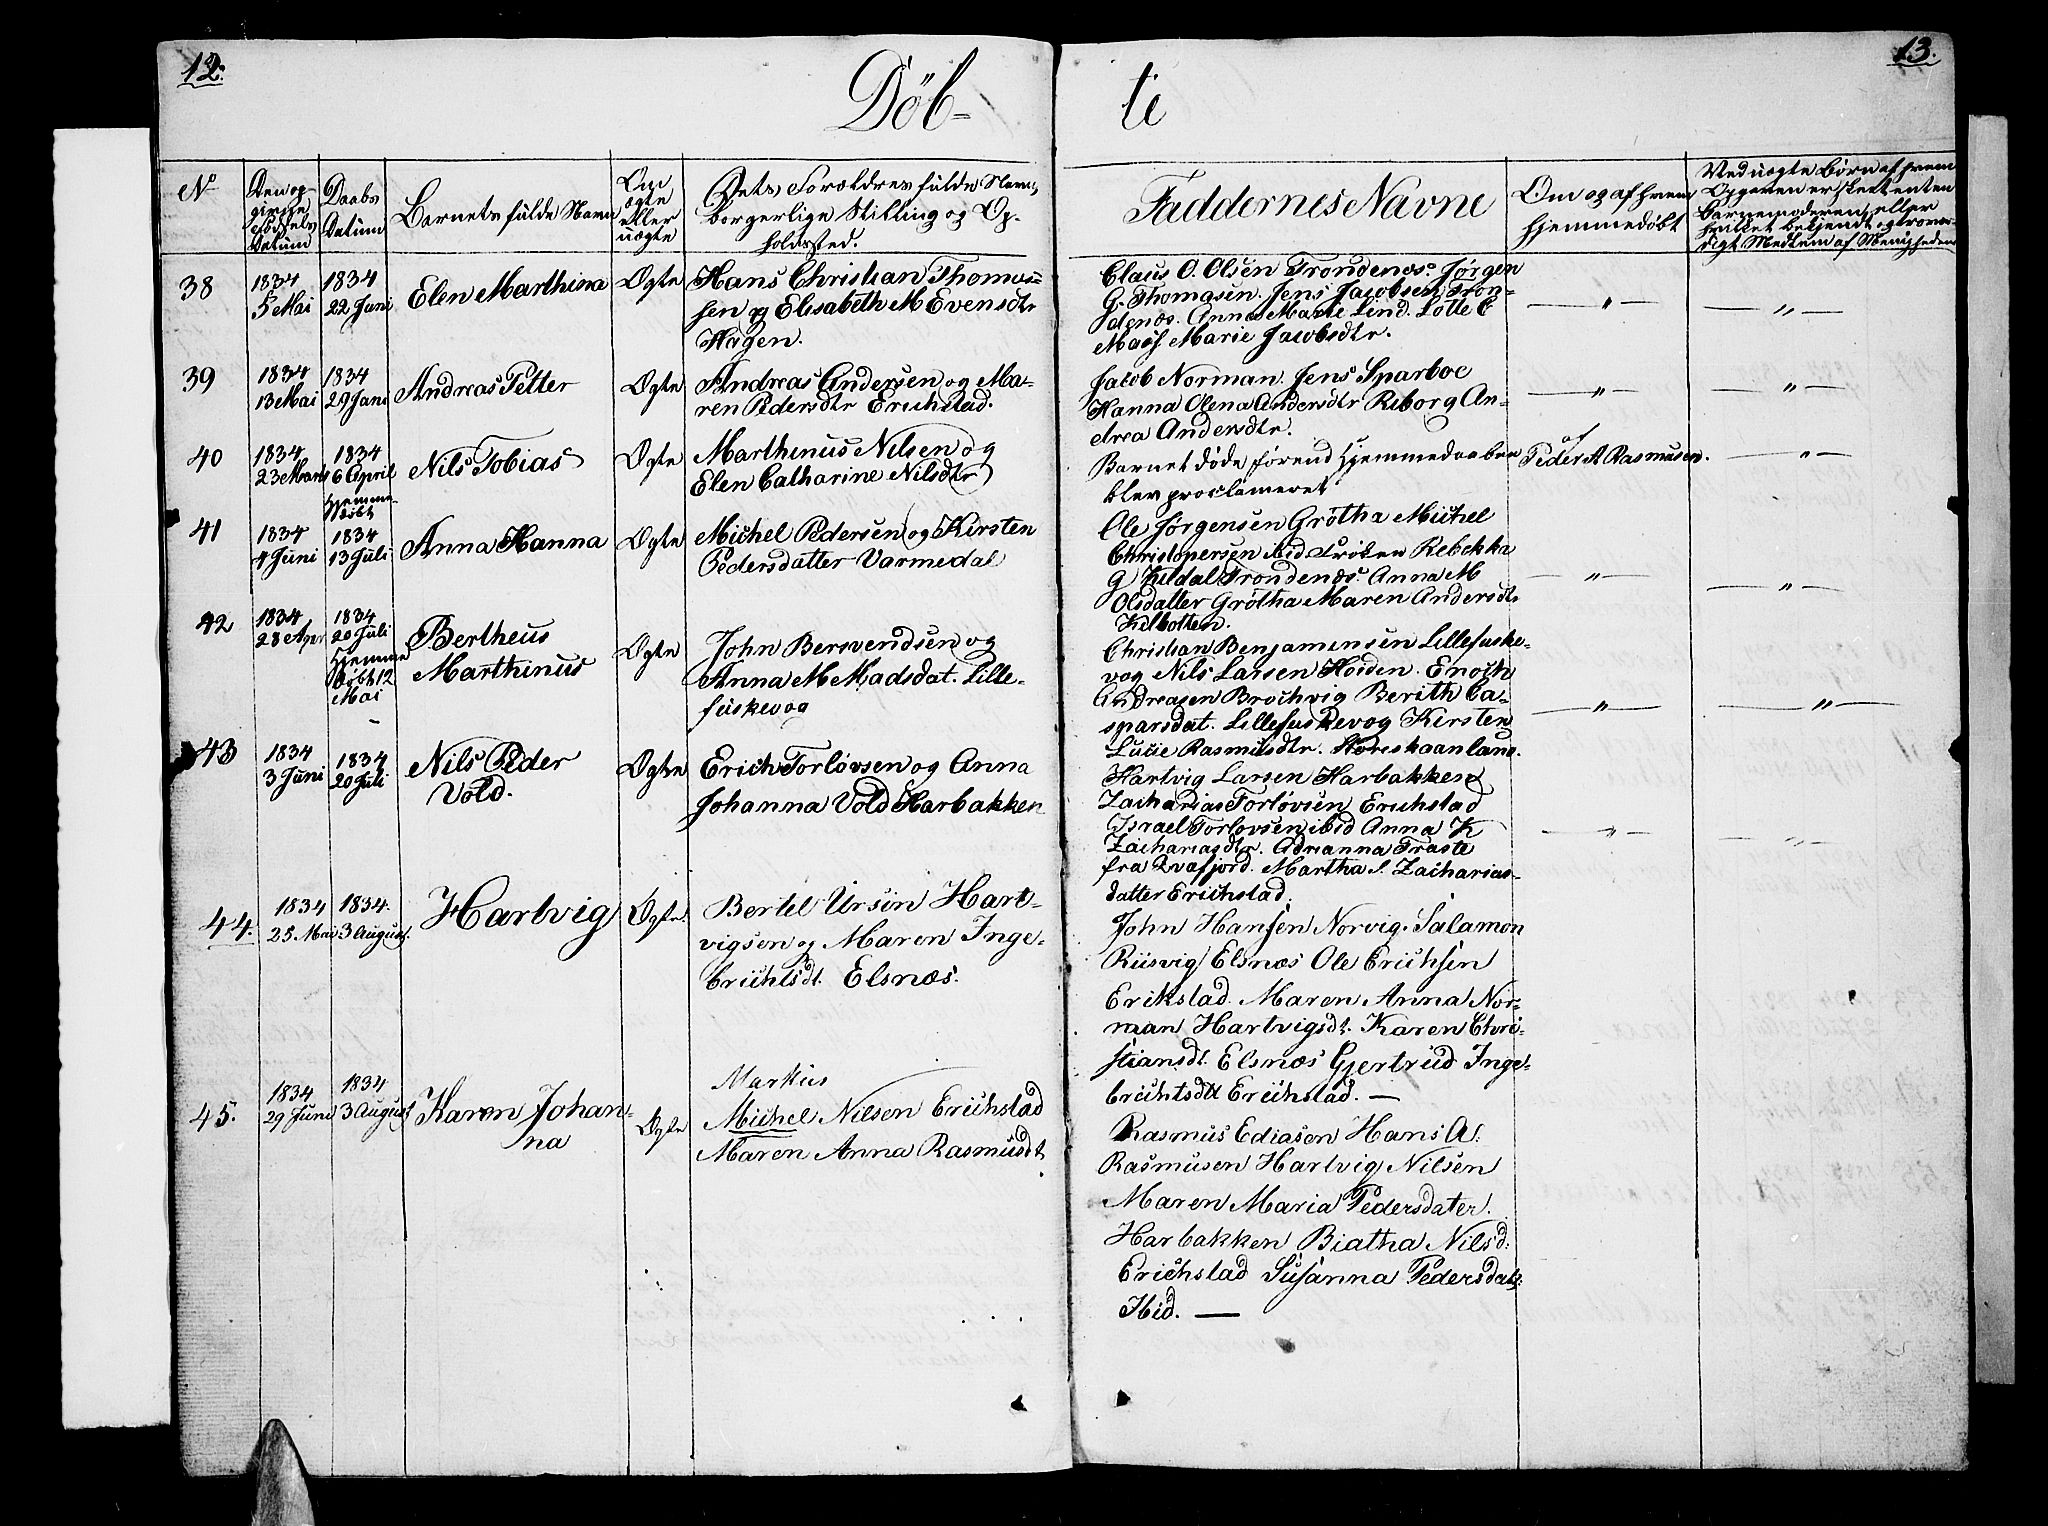 12.
13.
Döb-
te
No
Den op-
givne
Fødsels
Datum
Daabs
Datum
Barnets fulde Navn
Om
ægte
eller
uægte
Dets Forældres fulde Navn,
borgerlige Stilling og Op-
holdssted.
Faddernes Navne
Om og af hvem
hjemmedøbt
Ved uægte Børn af hvem
Opgaven er skeet enten
Barnemoderen, eller
hvilket bekjendt, og trovær-
digt Medlem af Menigheden
38
1834
5 Mai
1834
22 Juni
Elen Marthina
Ægte
Hans Christian Thomas-
sen og Elisabeth M Evensdtr
Hagen.
Claus O. Olsen Trondenæs. Jørgen
G. Thomasen. Jens Jacobsen Tron-
denæs. Anna Marie Lind. Lotte E
Maas Marie Jacobsdtr.
39
1834
13 Mai
1834
29 Juni
Andreas Petter
Ægte
Andreas Andersen og Ma-
ren Pedersdtr Erichstad.
Jacob Norman. Jens Sparboe
Hanna Olena Andersdtr Reborg An-
drea Andersdtr.
40
1834
23 Marts
1834
6 April
Hjemme
døbt
Nils Tobias
Ægte
Marthinus Nilsen og
Elen Catharine Nilsdtr
Barnet døde førend Hjemmedaaben
blev proclameret
af
Peder A Rasmusen.
41
1834
4 Juni
1834
13 Juli
Anna Hanna
Ægte
Michel Pedersen og Kirsten
Pedersdatter Varmedal
Ole Jørgensen Grøtha Michel
Christopersen ibid Frøken Rebekka
G Kildal Trondenæs. Anna M
Olsdatter Grøtha Maren Andersdtr
Kilbotten.
42
1834
28 Apr
1834
20 Juli
Hjemme
døbt 12
Mai
Bertheus
Marthinus
Ægte
John Bersvendsen og
Anna M Madsdat. Lille-
fuskevog
Christian Benjaminsen Lillefuske-
vog Nils Larsen Holden. Enoch
Andreasen Brochvig Berith Ca-
sparsdat. Lillefuskevog Kirsten
Lucie Rasmusdtr. Storeskaanland.
43
1834
3 Juni
1834
20 Juli
Nils Peder
Vold.
Ægte
Erich Torløvsen og Anna
Johanna Vold Harbakken
Hartvig Larsen Harbakken
Zacharias Torløvsen Erichstad
Israel Torlovsen ibid Anna K
Zachariasdtr. Adrianna Traste
fra Qvafjord. Martha S. Zacharias-
datter Erichstad.
44.
1834
25. Mai
1834.
3 August.
Hartvig
Ægte.
Bertel Ursin Hart-
vigsen og Maren Inge-
brichtsdt. Elsnæs.
John Hansen Norvig. Salamon
Riisvig Elsnæs Ole Erichsen
Erikstad. Maren Anna Nor-
man Hartvigsdt. Karen Chri-
stiansdt. Elsnæs Gjertrud Inge-
brichtsdtt Erichstad. —
45.
1834
29 Juni
1834
3 August
Karen Johan-
na
Ægte
Markus
Michel Nilsen Erichstad
Maren Anna Rasmusdt
Rasmus Ediasen Hans A.
Rasmusen Hartvig Nilsen
Maren Maria Pedersdater.
Harbakken Biatha Nilsd:
Erichstad Susanna Pedersdat:
Ibid. —